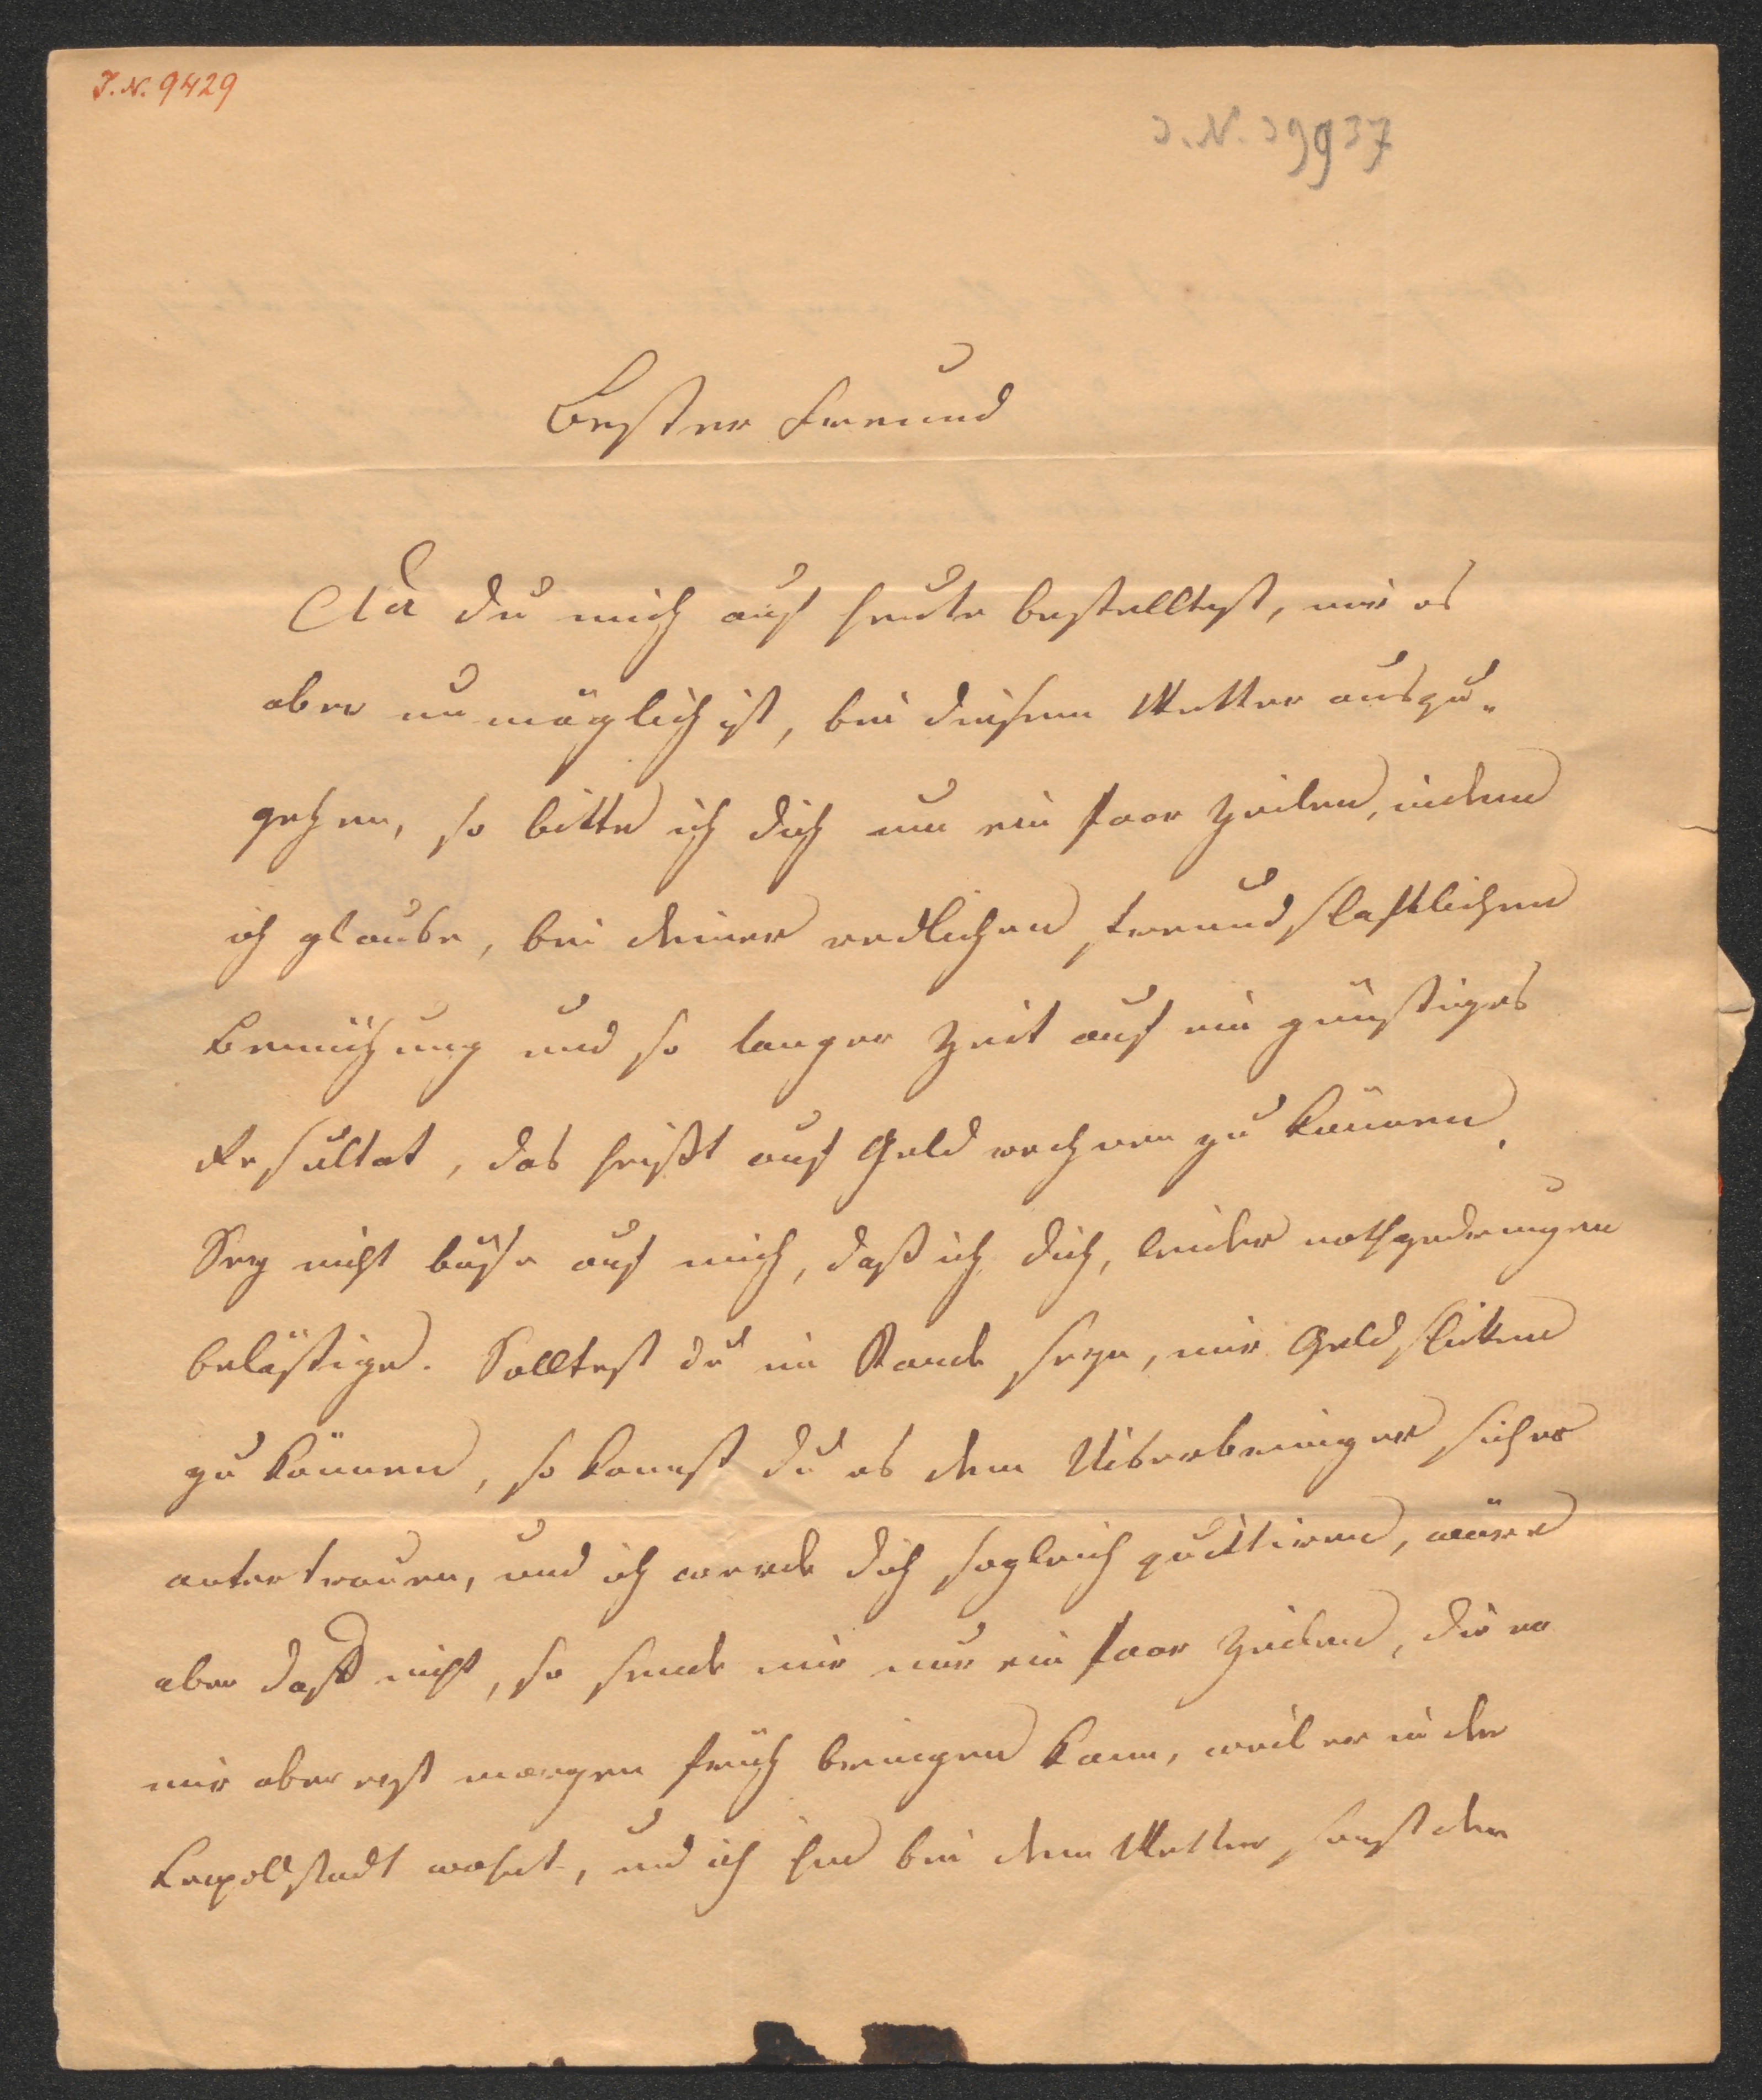 J. N. 9429
J. N. 39937
Bester Freund
Da du mich auf heute bestelltest, mir es
aber unmöglich ist, bei diesem Wetter auszu-
gehen, so bitte ich dich um ein Paar Zeilen, indem
ich glaube, bei deiner redlichen freundschaftlichen
Bemühung und so langer Zeit auf ein günstiges
Resultat, das heißt auf Geld rechnen zu können.
Sey nicht böse auf mich, daß ich dich, leider nothgedrungen
belästige. Solltest du im Stande seyn, mir Geld schicken
zu können, so kannst du es dem Uiberbringer sicher
antertrauen, und ich werde dich sogleich quittiren, wäre
aber daß nicht, so sende mir nur ein Paar Zeilen, die er
mir aber erst morgen früh bringen kann, weil er in der
Leopoldstadt wohnt, und ich ihn bei dem Wetter sonst den